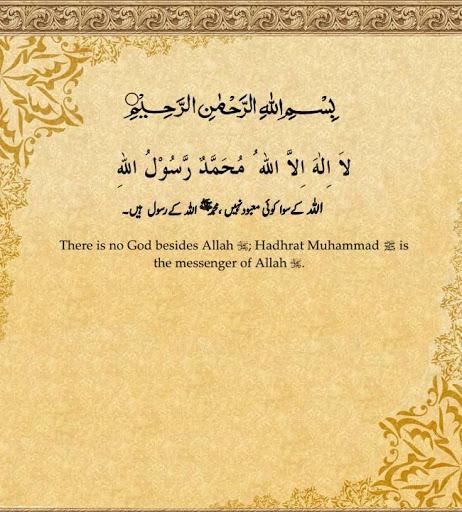 بِسْمِ اللهِ الرَّحْمٰنِ الرَّحِيْمِ
لاَ اِلٰهَ اِلاَّ اللهُ مُحَمَّدٌ رَّسُوْلُ اللهِ
اللہ کے سوا کوئی معبود نہیں، محمد ﷺ اللہ کے رسول ہیں۔
There is no God besides Allah ; Hadhrat Muhammad ﷺ is
the messenger of Allah .